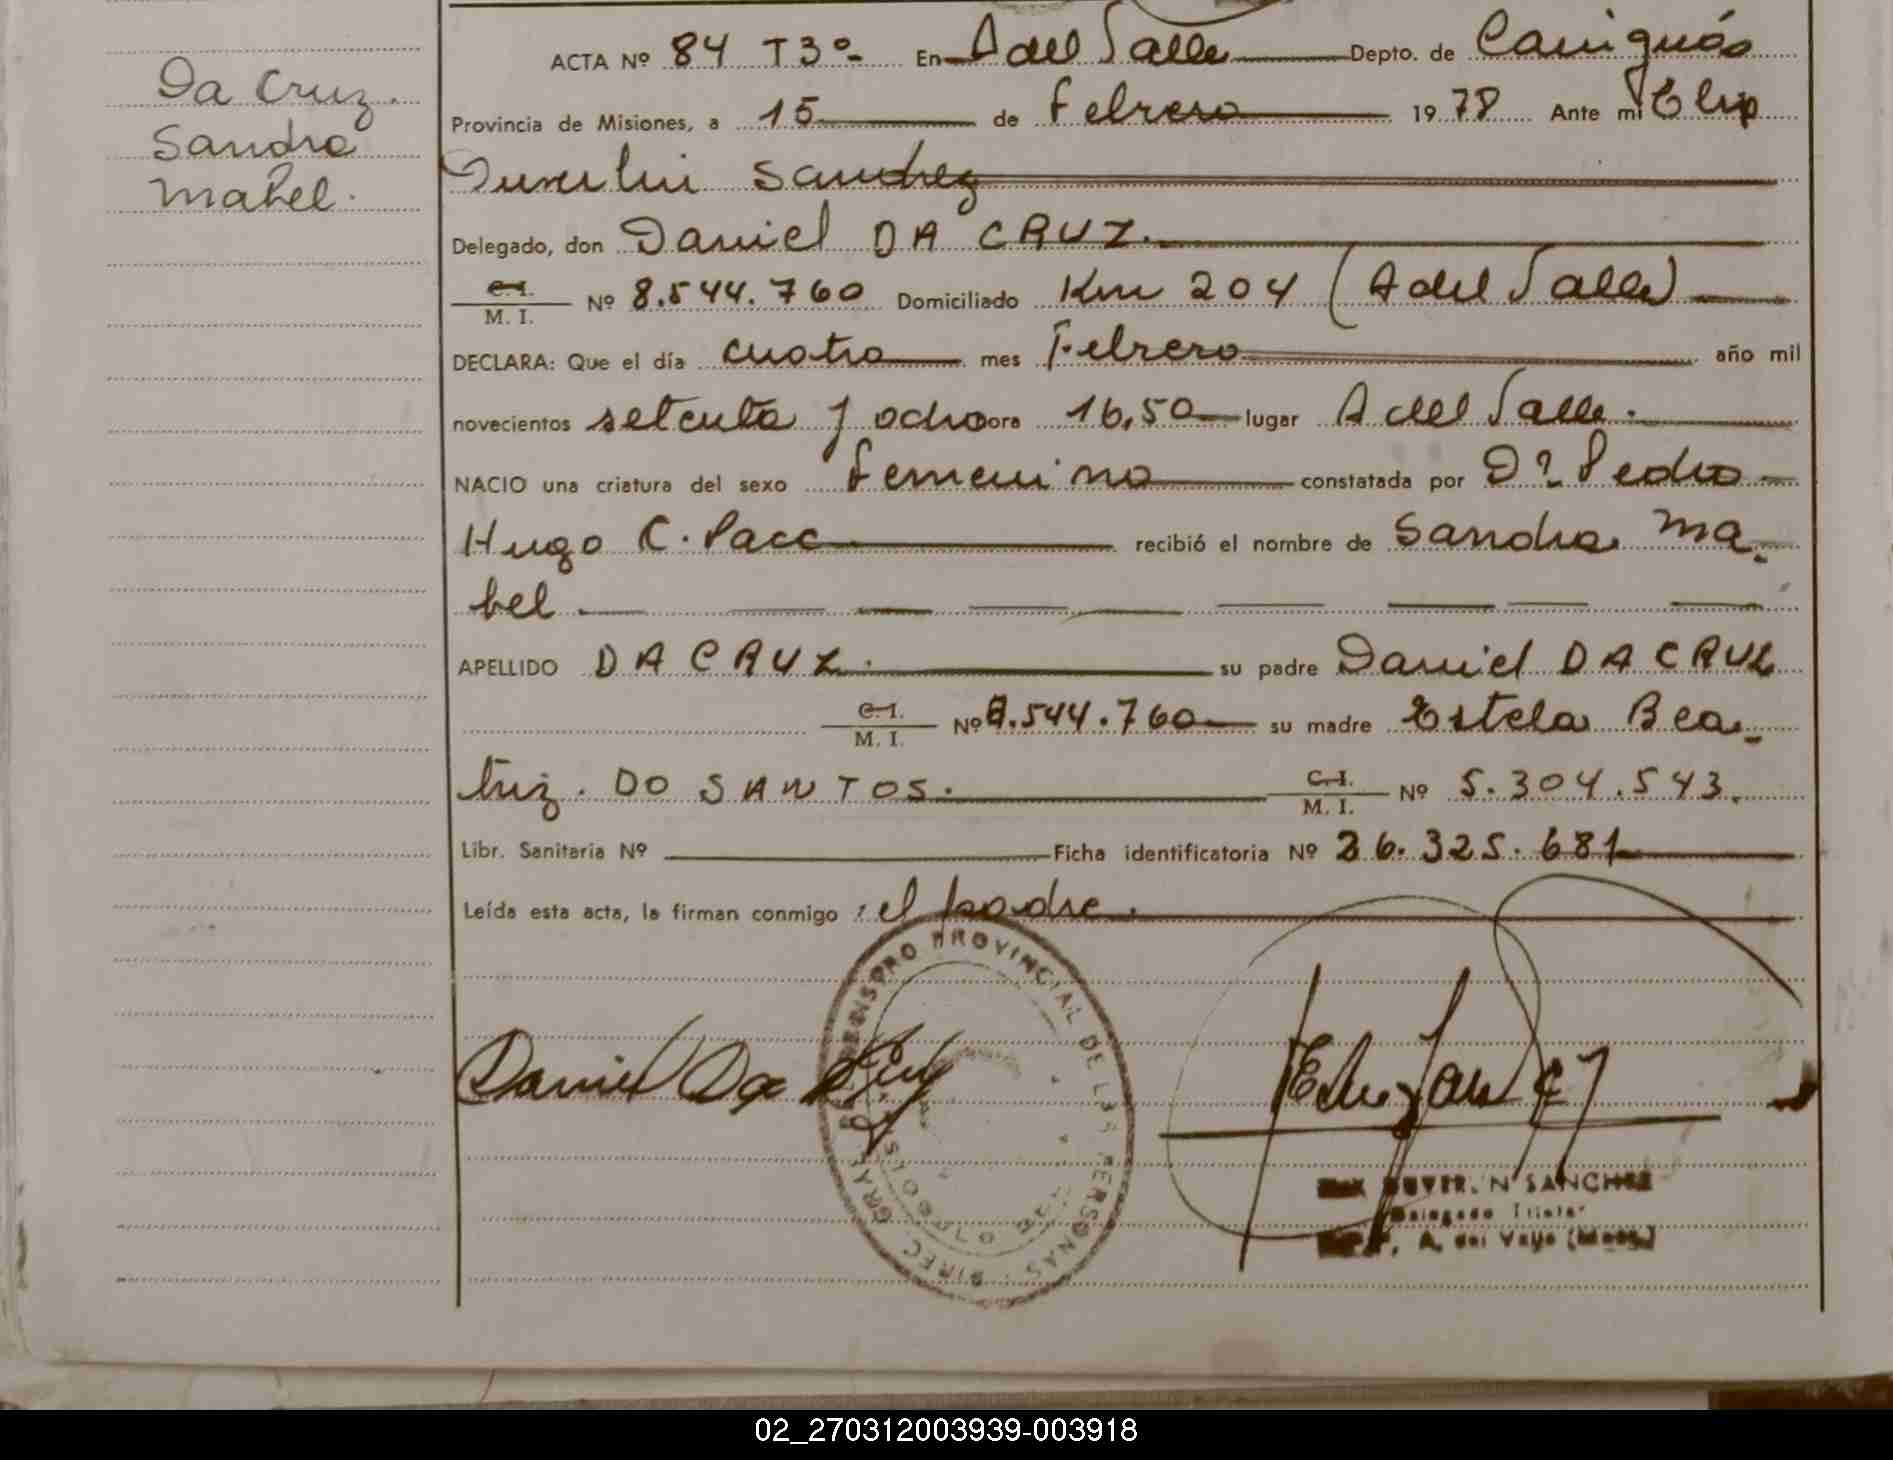 Da Cruz.
Sandra
Mabel.
ACTA Nº 84 T3º- En A del Valle Depto. de Cainguás
Provincia de Misiones, a 15 de Febrero 1978 Ante mi
Sanchez
Delegado, don Daniel DA CRUZ.
C.I. M. I. Nº 8.544.760 Domiciliado Km 204 (A del Valle)
DECLARA: Que el día cuatro mes Febrero año mil
novecientos setenta y ocho ora 16,50 lugar A del Valle.
NACIO una criatura del sexo Femenino constatada por Dr. Pedro
Hugo C. recibió el nombre de Sandra Ma-
bel
APELLIDO DA CRUZ. su padre Daniel DA CRUZ
C.I. M. I. Nº 8.544.760 su madre Estela Bea-
triz. DO SANTOS. C.I. M. I. Nº 5.304.543.
Libr. Sanitaria Nº Ficha identificatoria Nº 26.325.681
Leída esta acta, la firman conmigo : el padre.
DIREC. GRAL. DEL REGISTRO PROVINCIAL DE LAS PERSONAS
Daniel Da Cruz
N SANCHEZ
Delegado Titular
A. del Valle
02_270312003939-003918